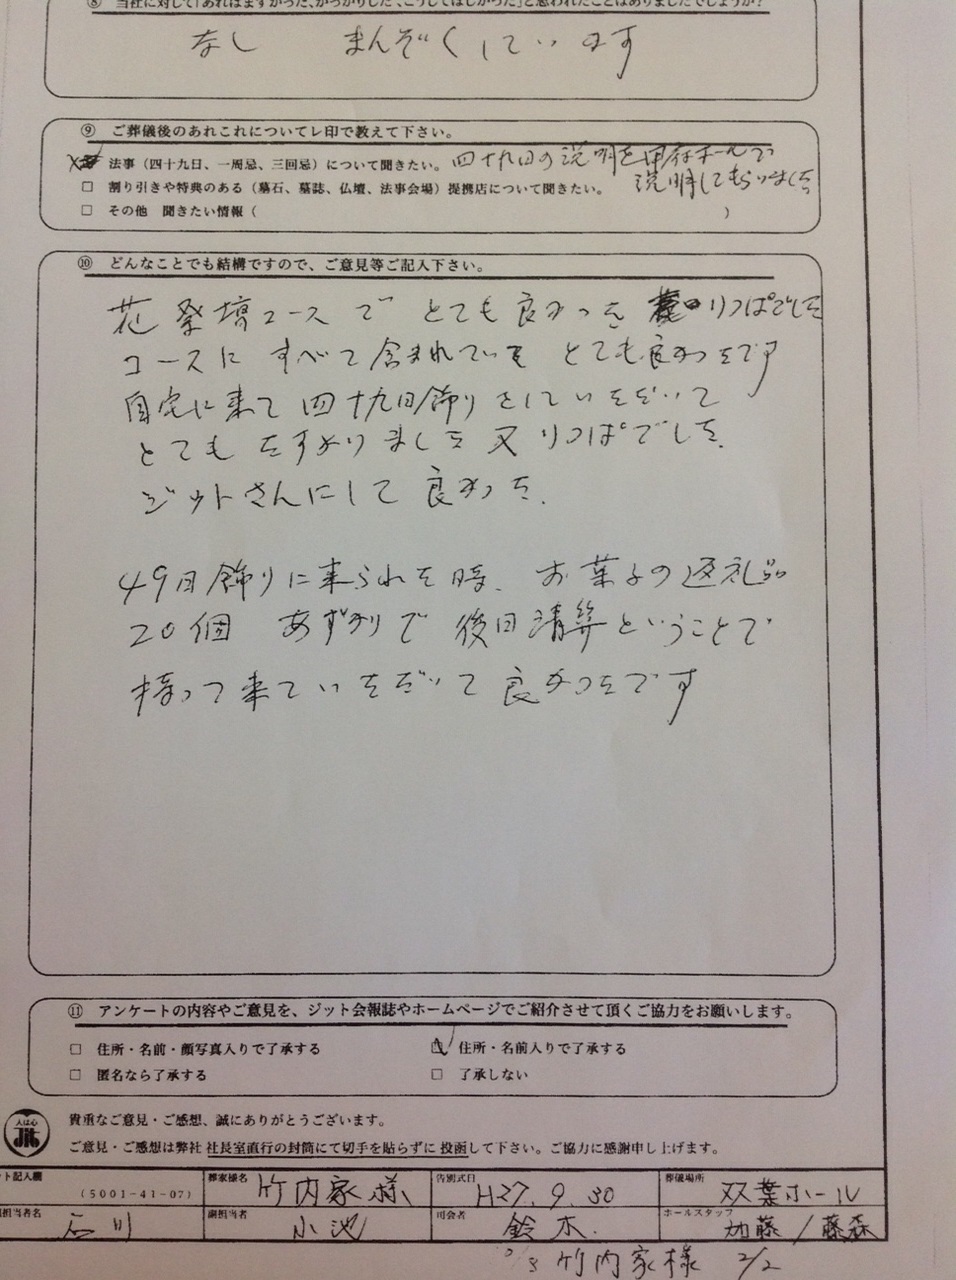 ⑧ 当社に対して「あればまずかった、がっかりした、こうしてほしかった」と思われたことはありましたでしょうか?
なし まんぞくしています
⑨ ご葬儀後のあれこれについてレ印で教えて下さい。
法事(四十九日、一周忌、三回忌)について聞きたい。 四十九日の説明を 甲府ホールで
□ 割り引きや特典のある(墓石、墓誌、仏壇、法事会場)提携店について聞きたい。 説明してもらいました
□ その他 聞きたい情報( )
⑩ どんなことでも結構ですので、ご意見等ご記入下さい。
花祭壇コースで とても良かった りっぱでした
コースに すべて含まれていて とても良かったです
自宅に来て 四十九日飾りをしていただいて
とても たすかりました 又 りっぱでした。
ジットさんにして 良かった。
49日飾りに来られた時、お菓子の返礼品
20個 あずかりで 後日清算ということで
持って来ていただいて良かったです
⑪ アンケートの内容やご意見を、ジット会報誌やホームページでご紹介させて頂くご協力をお願いします。
□ 住所・名前・顔写真入りで了承する ☑ 住所・名前入りで了承する
□ 匿名なら了承する □ 了承しない
人は心 Jit
貴重なご意見・ご感想、誠にありがとうございます。
ご意見・ご感想は弊社 社長室直行の封筒にて切手を貼らずに 投函して下さい。ご協力に感謝申し上げます。
ット記入欄 (5001-41-07) 葬家様名 竹内家様 告別式日 H27.9.30 葬儀場所 双葉ホール
担当者名 石川 副担当者 小池 司会者 鈴木. ホールスタッフ 加藤/藤森
竹内家様 2/2